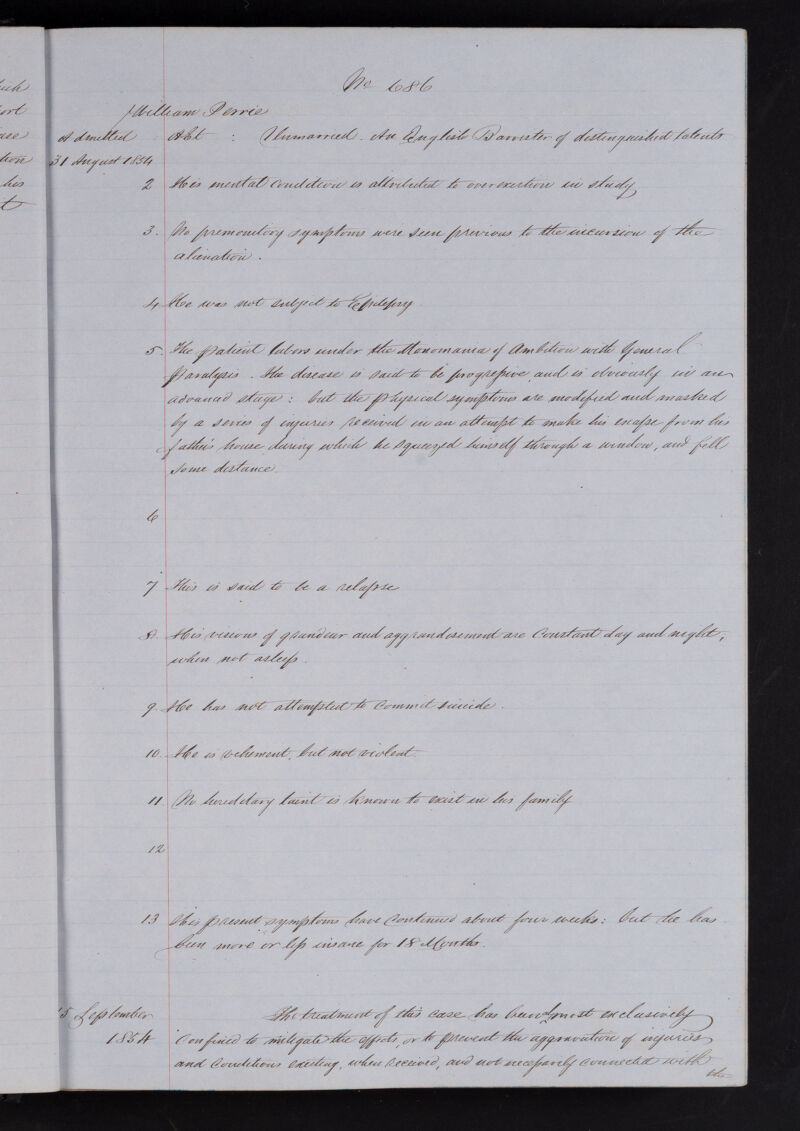 No 686
William Perrie
Admitted AEt : Unmarried. An English Barrister of distinguished talents
31 August 1854
2 His mental condition is attributed to over exertion in study
3. No premonitory symptoms were seen previous to the incursion of the
alienation.
4 He was not subject to Epilepsy
5. The patient labors under the Monomania of Ambition with General
Paralysis. The disease is said to be progressive, and is obviously in an
advanced stage: but the physical symptoms are modified and masked
by a series of injuries received in an attempt to make his escape from his
father's house, during which he squeezed himself through a window, and fell
some distance.
6
7 This is said to be a relapse
8. His visions of grandeur and aggrandisement are constant day and night,
when not asleep.
9. He has not attempted to commit suicide.
10. He is vehement, but not violent
11 No hereditary taint is known to exist in his family
12
13 His present symptoms have continued about four weeks: but he has
been more or less insane for 18 Months.
15 September The treatment of this case has been almost exclusively
1854 confined to mitigate the effects, or to prevent the aggravation of injuries
and conditions existing, when received, and not necessarily connected with
the
uch
ort
ase
tion
his
t